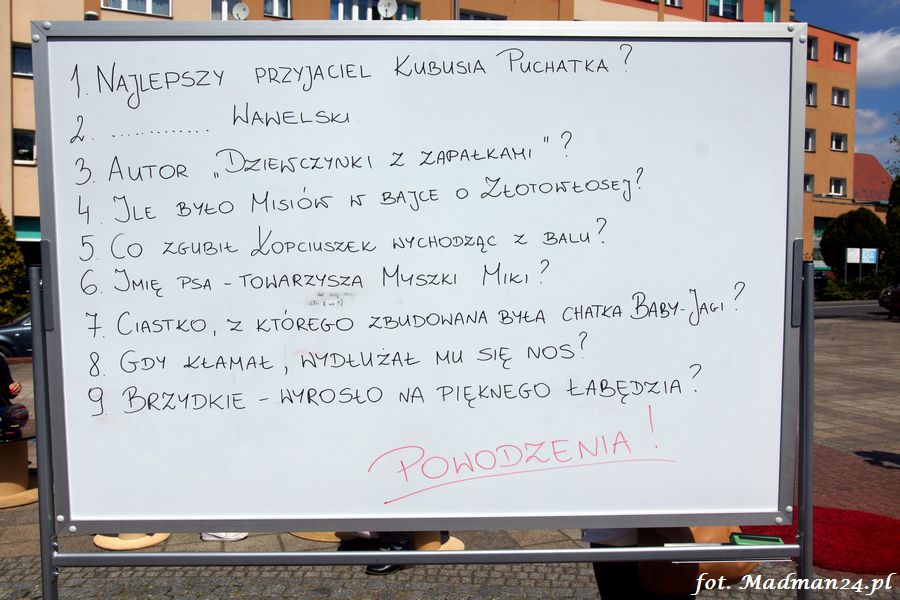 1. NAJLEPSZY PRZYJACIEL KUBUSIA PUCHATKA?
2. ............. WAWELSKI
3. AUTOR „DZIEWCZYNKI Z ZAPAŁKAMI"?
4. ILE BYŁO MISIÓW W BAJCE O ZŁOTOWŁOSEJ?
5. CO ZGUBIŁ KOPCIUSZEK WYCHODZĄC Z BALU?
6. IMIĘ PSA - TOWARZYSZA MYSZKI MIKI?
7. CIASTKO, Z KTÓREGO ZBUDOWANA BYŁA CHATKA BABY-JAGI?
8. GDY KŁAMAŁ, WYDŁUŻAŁ MU SIĘ NOS?
9. BRZYDKIE - WYROSŁO NA PIĘKNEGO ŁABĘDZIA?
POWODZENIA!
fot. Madman24.pl